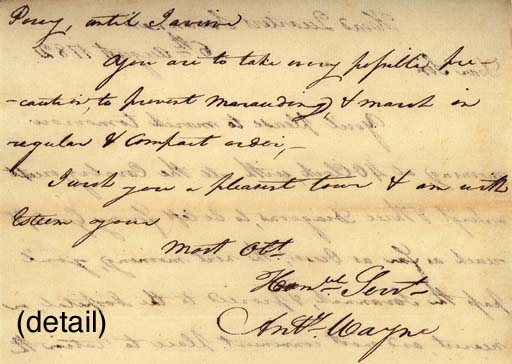 Pocog, until I arrive
You are to take every possible pre-
-caution to prevent marauding, & march in
regular & Compact order,-
I wish you a pleasant tour & am with
Esteem your
Most Obt.
Humble Servt.
Anty. Wayne
(detail)